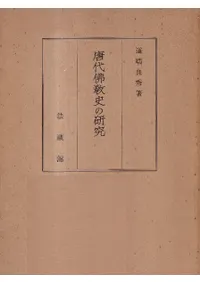 道端良秀著
唐代佛教史の研究
法藏館